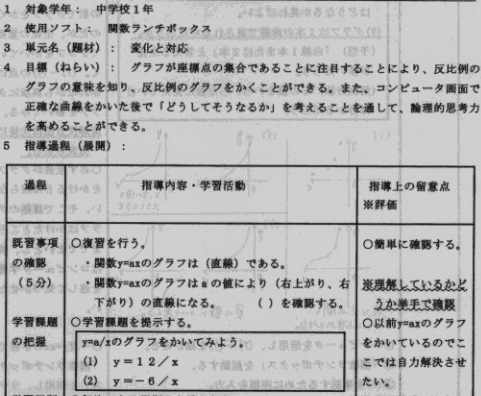 1 対象学年： 中学校１年
2 使用ソフト： 関数ランチボックス
3 単元名（題材）： 変化と対応
4 目標（ねらい）： グラフが座標点の集合であることに注目することにより、反比例の
グラフの意味を知り、反比例のグラフをかくことができる。また、コンピュータ画面で
正確な曲線をかいた後で「どうしてそうなるか」を考えることを通して、論理的思考力
を高めることができる。
5 指導過程（展開）：
過程
指導内容・学習活動
指導上の留意点
※評価
既習事項
の確認
（５分）
○復習を行う。
・関数y=axのグラフは（直線）である。
・関数y=axのグラフはａの値により（右上がり、右
下がり）の直線になる。 （ ）を確認する。
○簡単に確認する。
※理解しているかど
うか挙手で確認
学習課題
の把握
○学習課題を提示する。
y=a/xのグラフをかいてみよう。
(1) ｙ＝１２／ｘ
(2) ｙ＝－６／ｘ
○以前y=axのグラフ
をかいているのでこ
こでは自力解決させ
たい。